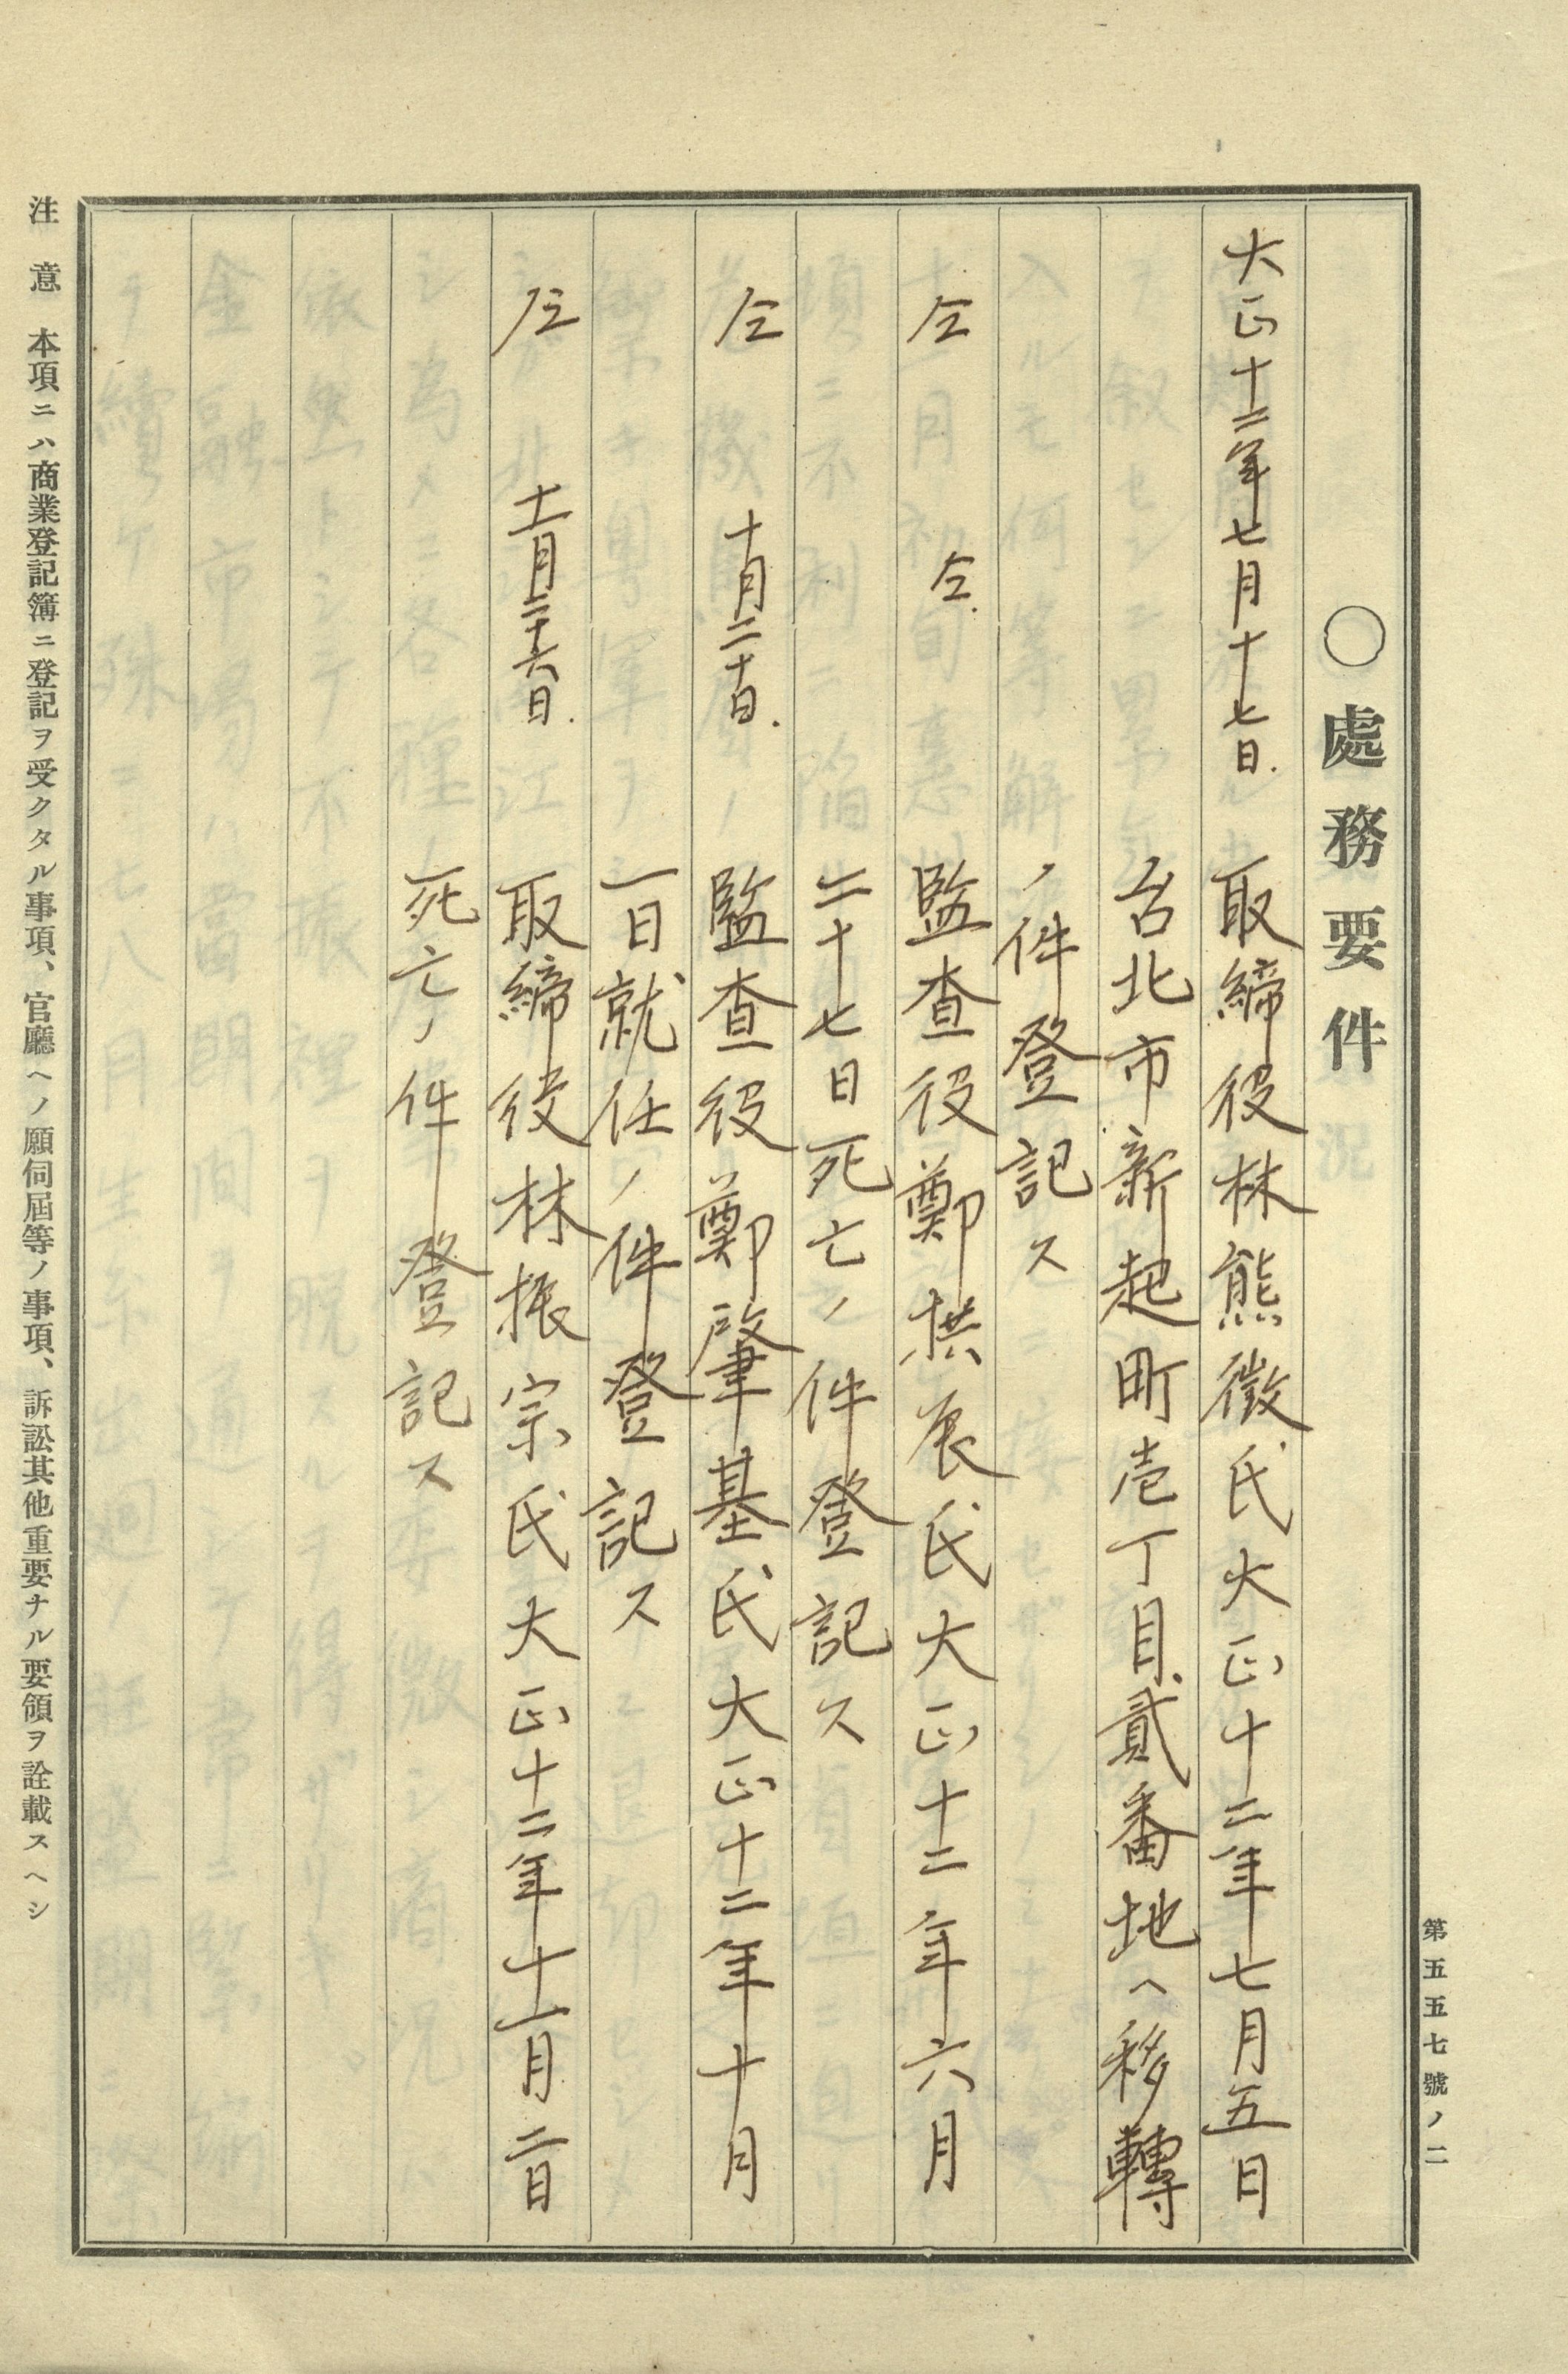 第五五七號ノ二
〇處務要件
大正十二年七月十七日. 取締役林熊徵氏大正十二年七月五日
台北市新起町壱丁目貳番地ヘ移轉
ノ件登記ス
仝 仝. 監查役鄭拱辰氏大正十二年六月
二十七日死亡ノ件登記ス
仝 十月二十日. 監查役鄭肇基氏大正十二年十月
一日就任ノ件登記ス
仝 十一月二十六日. 取締役林振宗氏大正十二年十一月二日
死亡ノ件登記ス
注意 本項ニハ商業登記簿ニ登記ヲ受クタル事項、官廳ヘノ願伺屆等ノ事項、訴訟其他重要ナル要領ヲ詮載スヘシ